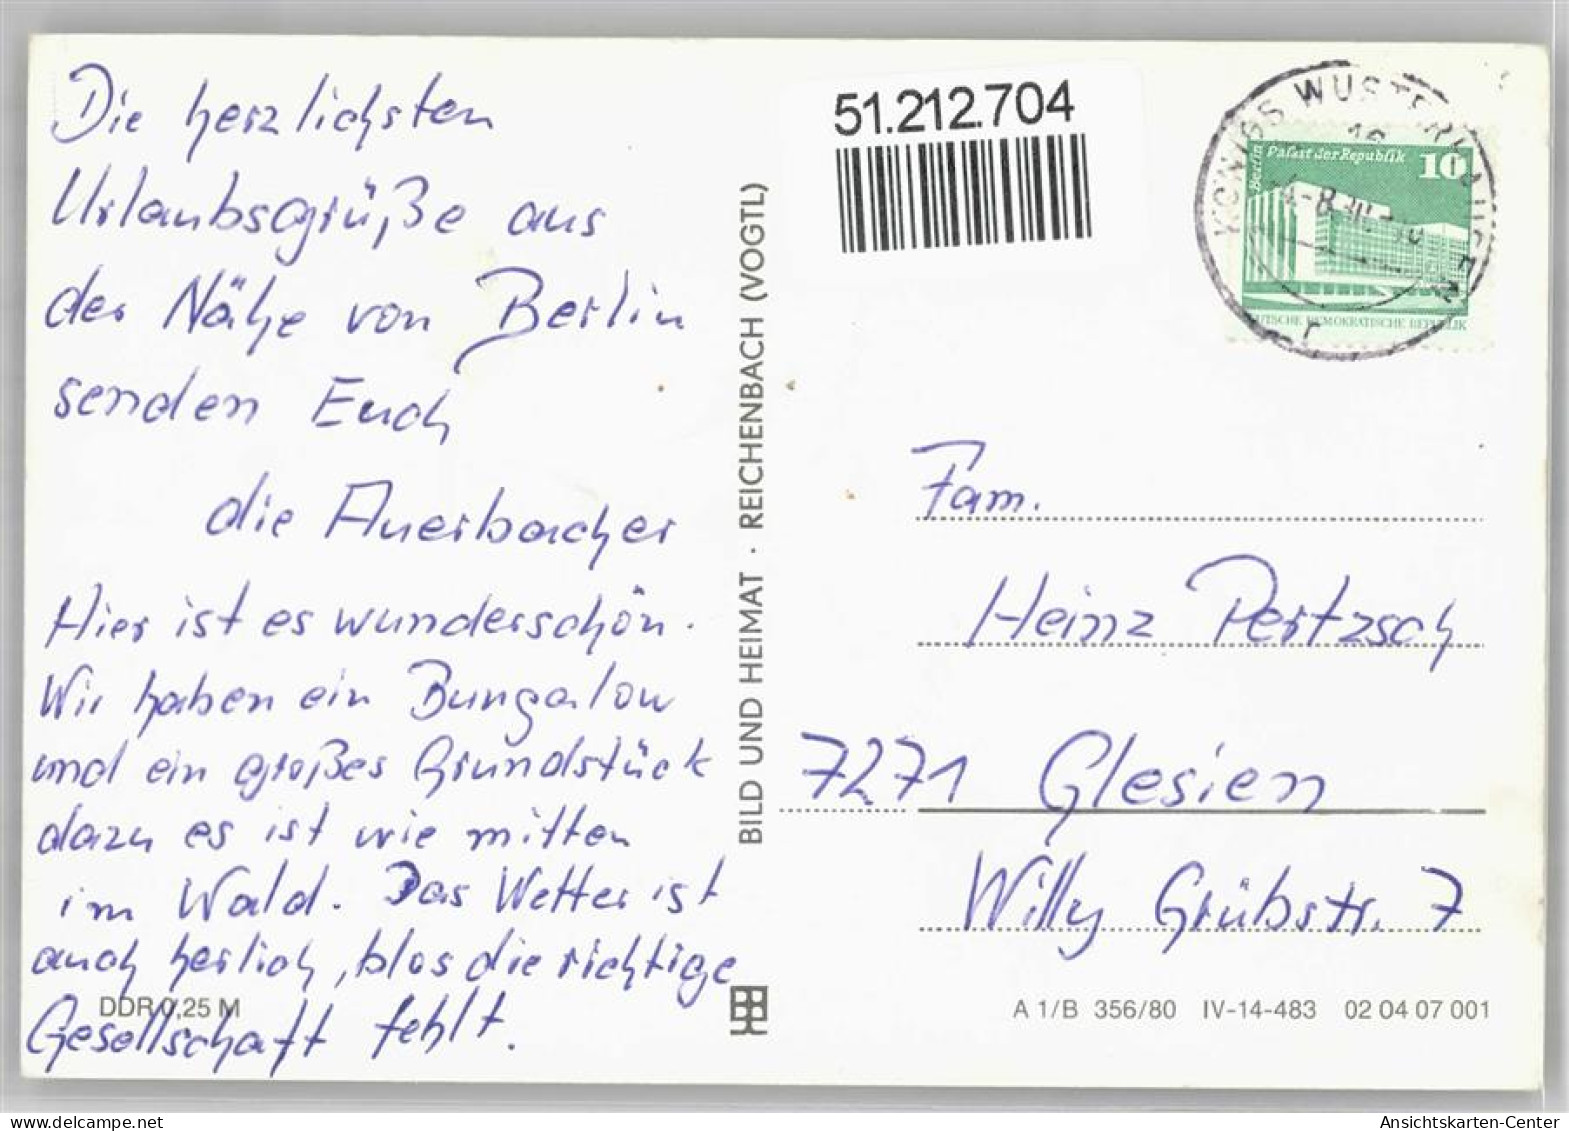 Die herzlichsten
Urlaubsgrüße aus
der Nähe von Berlin
senden Euch
die Auerbacher
Hier ist es wunderschön.
Wir haben ein Bungalow
und ein großes Grundstück
dazu es ist wie mitten
im Wald. Das Wetter ist
auch herlich, blos die richtige
Gesellschaft fehlt.
DDR 0,25 M
BILD UND HEIMAT · REICHENBACH (VOGTL)
51.212.704
KÖNIGS WUSTERHAUSEN
Berlin
Palast der Republik
10
DEUTSCHE DEMOKRATISCHE REPUBLIK
Fam.
Heinz Pertzsch
7271 Glesien
Willy Grübstr. 7
A 1/B 356/80 IV-14-483 02 04 07 001
Ansichtskarten-Center